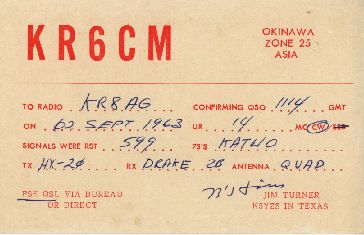 KR6CM
OKINAWA
ZONE 25
ASIA
TO RADIO KR8AG CONFIRMING QSO 1114 GMT
ON 02 SEPT. 1963 UR 14 MC CW/SSB
SIGNALS WERE RST 599 73'S
TX HX-20 RX DRAKE 2B ANTENNA QUAD
PSE QSL VIA BUREAU
OR DIRECT
73's Jim
JIM TURNER
K5YZS IN TEXAS